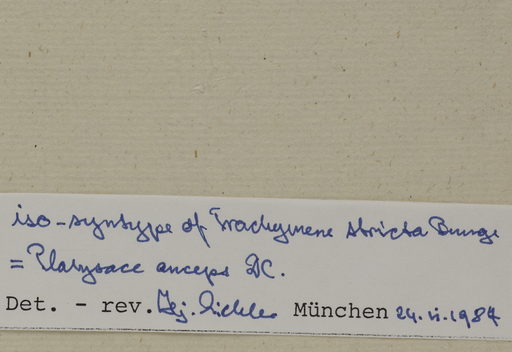 iso-syntype of Trachymene stricta Bunge
= Platysace anceps DC.
Det. - rev. Hj. Eichler München 24.vi.1987